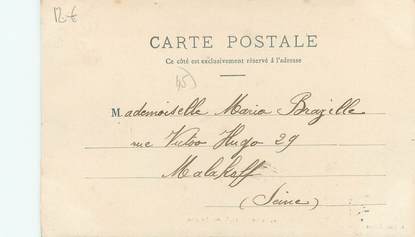 12 €
CARTE POSTALE
Ce côté est exclusivement réservé à l'adresse
(45)
Mademoiselle Maria Brazelle
rue Victor Hugo 29
Malakoff
(Seine)